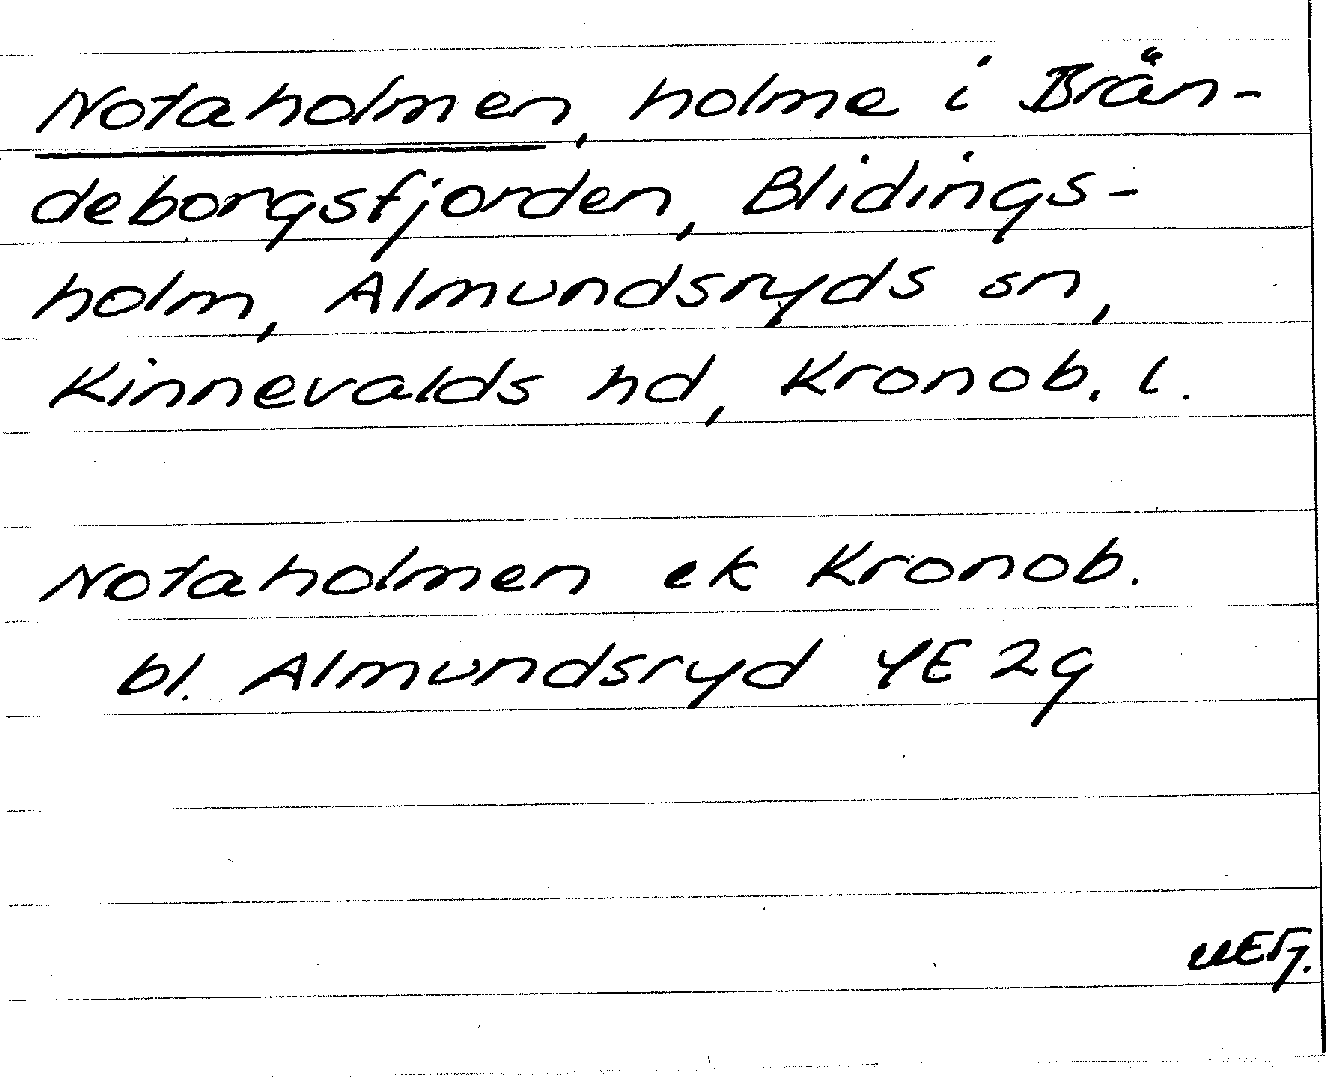 Notaholmen, holme i Brän-
deborgsfjorden, Blidings-
holm, Almundsryds sn,
Kinnevalds hd, Kronob. l.
Notaholmen ek Kronob.
bl. Almundsryd 4E 2g